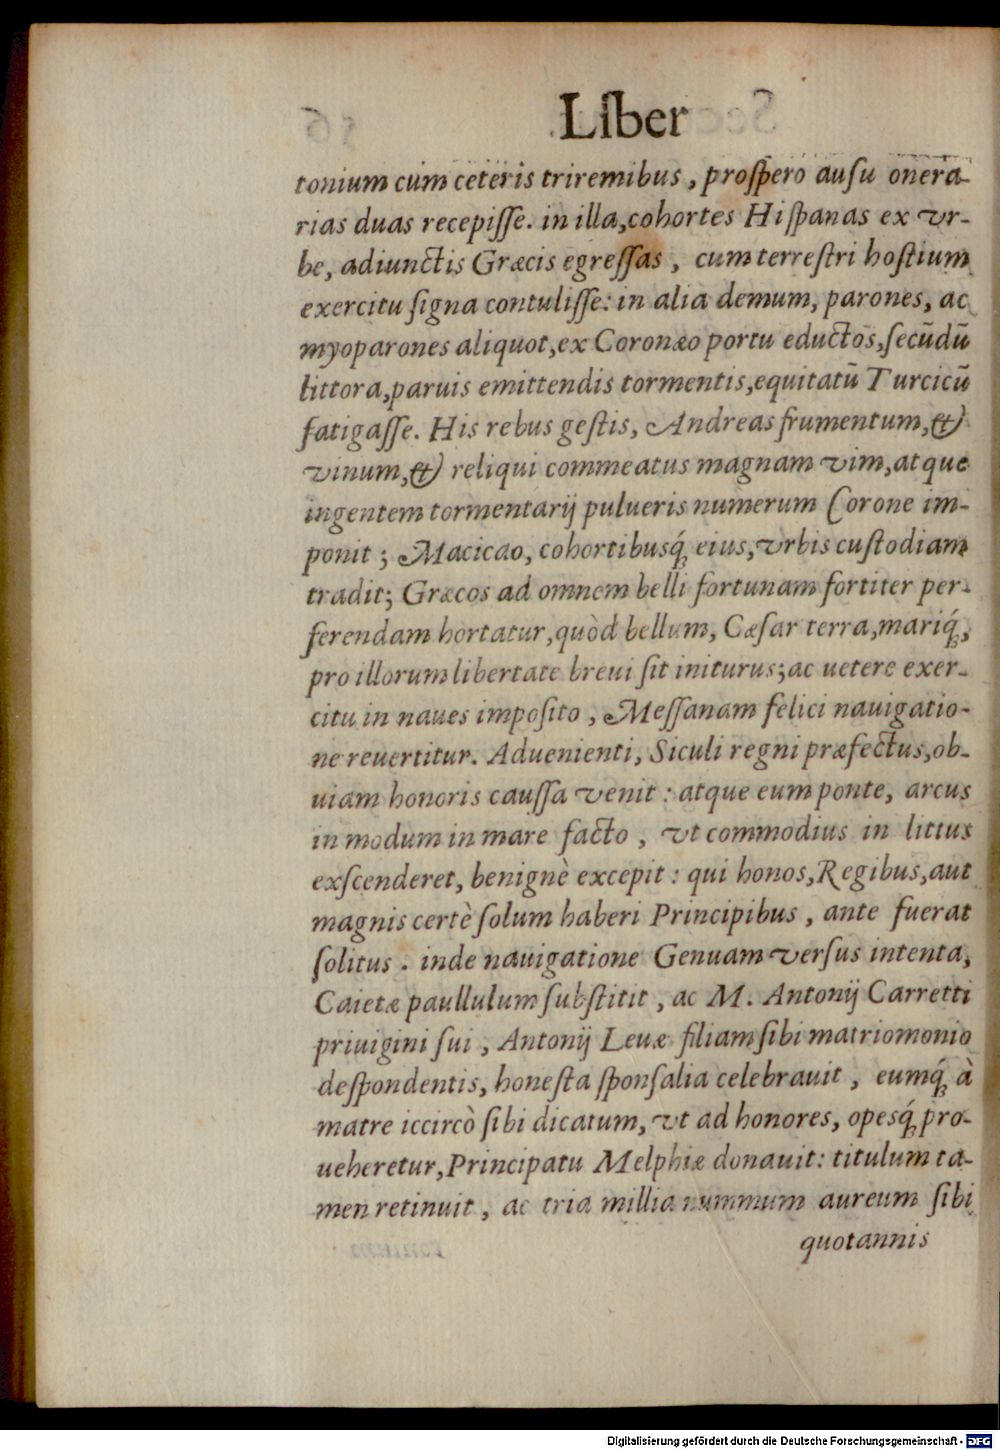 Liber
tonium cum ceteris triremibus, prospero ausu onera-
rias duas recepisse. in illa, cohortes Hispanas ex vr-
be, adiunctis Græcis egressas, cum terrestri hostium
exercitu signa contulisse: in alia demum, parones, ac
myoparones aliquot, ex Coronæo portu eductos, secūdū
littora, paruis emittendis tormentis, equitatū Turcicū
fatigasse. His rebus gestis, Andreas frumentum, &
vinum, & reliqui commeatus magnam vim, atque
ingentem tormentarij pulueris numerum Corone im-
ponit; Macicao, cohortibusq́; eius, vrbis custodiam
tradit; Græcos ad omnem belli fortunam fortiter per-
ferendam hortatur, quòd bellum, Cæsar terra, mariq́;,
pro illorum libertate breui sit initurus; ac uetere exer-
citu in naues imposito, Messanam felici nauigatio-
ne reuertitur. Aduenienti, Siculi regni præfectus, ob-
uiam honoris caussa venit: atque eum ponte, arcus
in modum in mare facto, vt commodius in littus
exscenderet, benignè excepit: qui honos, Regibus, aut
magnis certè solum haberi Principibus, ante fuerat
solitus. inde nauigatione Genuam versus intenta,
Caietæ paullulum substitit, ac M. Antonij Carretti
priuigini sui, Antonij Leuæ filiam sibi matriomonio
despondentis, honesta sponsalia celebrauit, eumq́; à
matre iccircò sibi dicatum, vt ad honores, opesq́; pro-
ueheretur, Principatu Melphiæ donauit: titulum ta-
men retinuit, ac tria millia nummum aureum sibi
quotannis
Digitalisierung gefördert durch die Deutsche Forschungsgemeinschaft - DFG